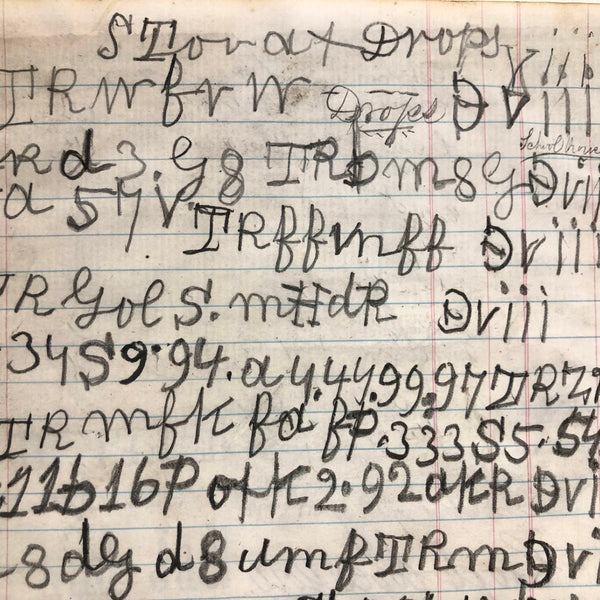 STovat Drops Viii
TRWfvW Drops Dviii
Schoolhouse
Rd3.G8 TRDm8GDvii
a 54V.
TRffvnff Dviii
TRGolS.mHdR Dviii
34S9.94.a4.44.99.97TRZ
TRmfK fd.fP.333S5.S4
.11b16P ofK2.92aKRDvi
8dG d8umfTRmDvi